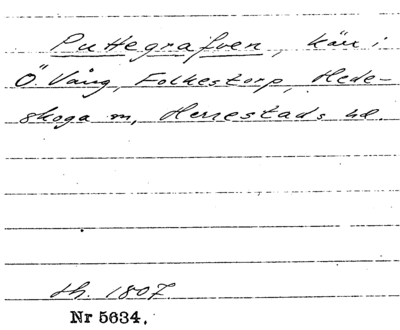 Puttegrafven, kärr i
Ö. Vång, Folkestorp, Hede-
skoga sn, Herrestads hd.
sh. 1807
Nr 5634.